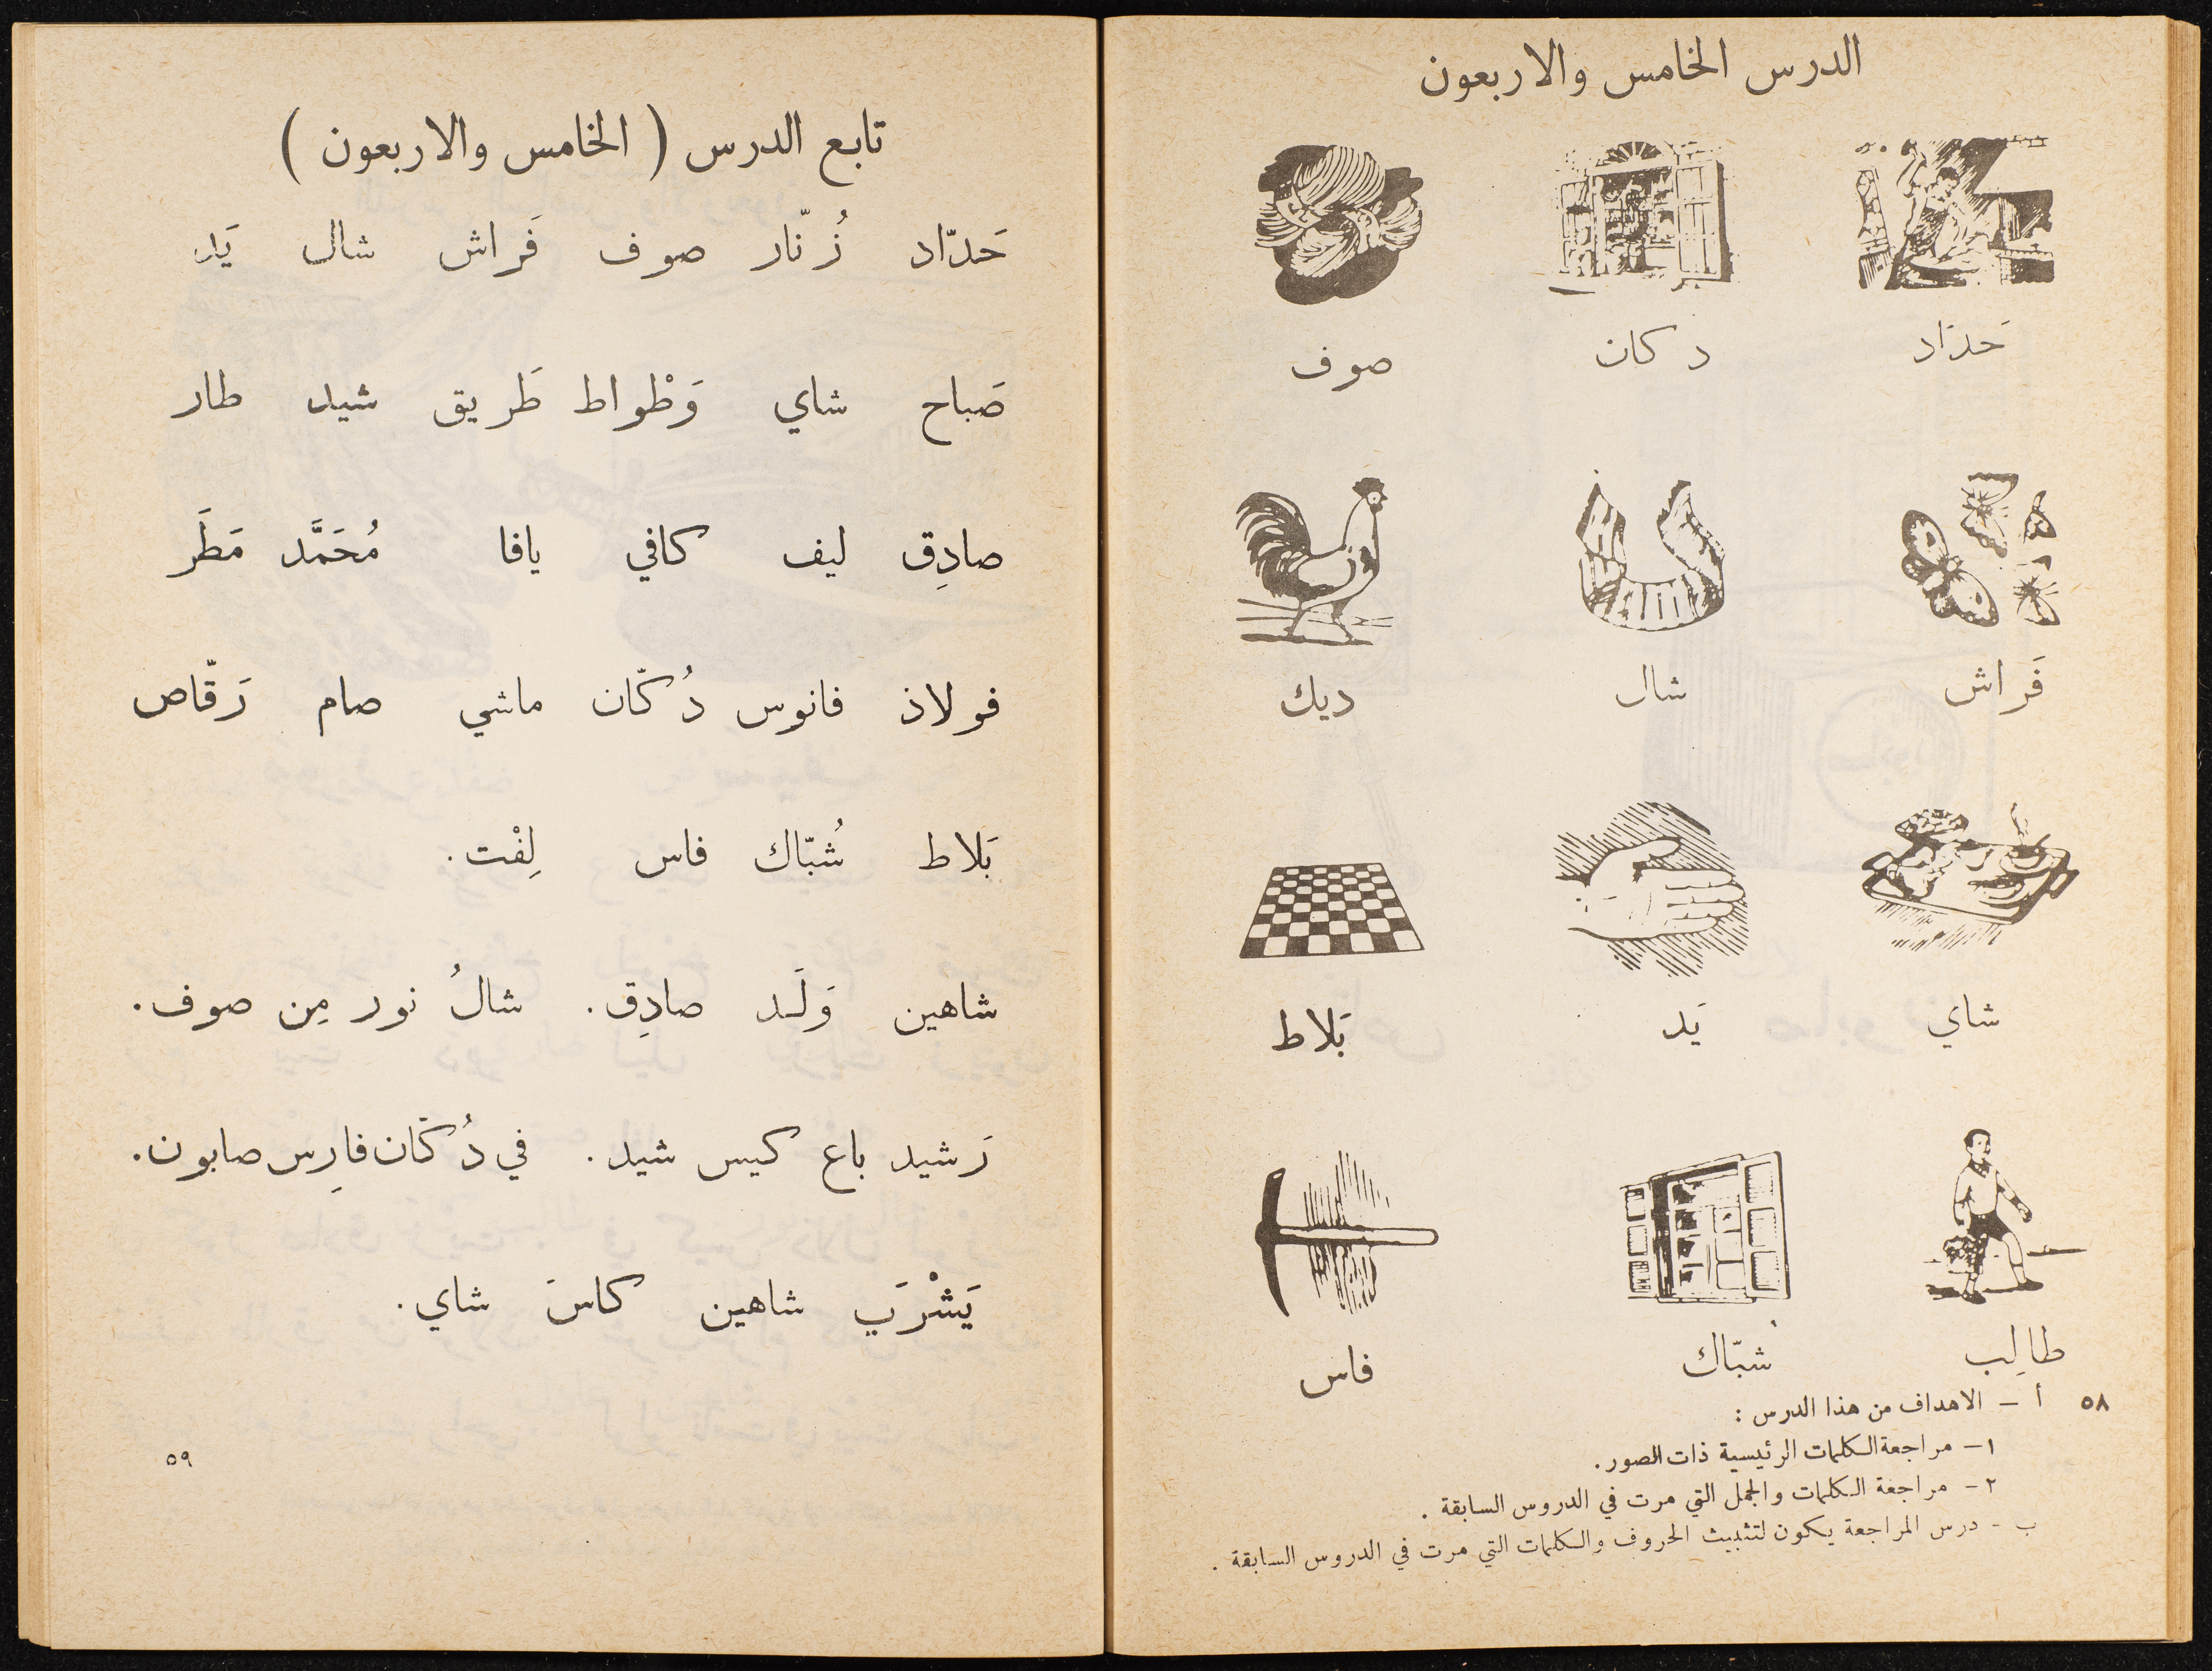 الدرس الخامس والاربعون
حَدّاد دكان صوف
فَراش شال ديك
شاي يَد بَلاط
طالِب شُبّاك فاس
٥٨
أ - الاهداف من هذا الدرس :
١- مراجعة الكلمات الرئيسية ذات الصور.
٢- مراجعة الكلمات والجمل التي مرت في الدروس السابقة .
ب - درس المراجعة يكون لتثبيث الحروف والكلمات التي مرت في الدروس السابقة .
تابع الدرس ( الخامس والاربعون )
حَدّاد زُنّار صوف فَراش شال يَد
صَباح شاي وَطْواط طَريق شيد طار
صادِق ليف كافي يافا مُحَمَّد مَطَر
فولاذ فانوس دُكّان ماشي صام رَقّاص
بَلاط شُبّاك فاس لِفْت .
شاهين وَلَد صادِق . شالُ نور مِن صوف .
رَشيد باع كيس شيد . في دُكّان فارِس صابون .
يَشْرَب شاهين كاسَ شاي .
٥٩